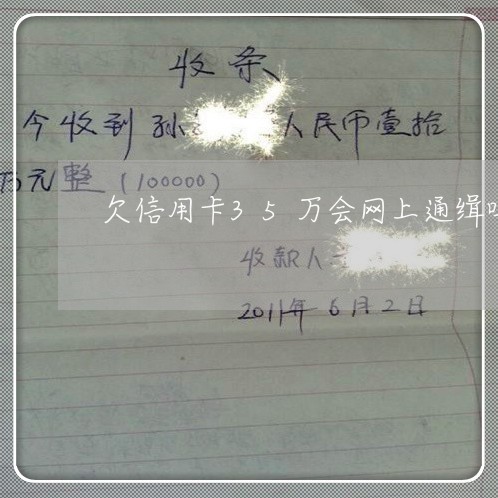 收条
今收到孙 人民币壹拾
万元整(100000)
欠信用卡35万会网上通缉吗
收款人
2011年6月2日